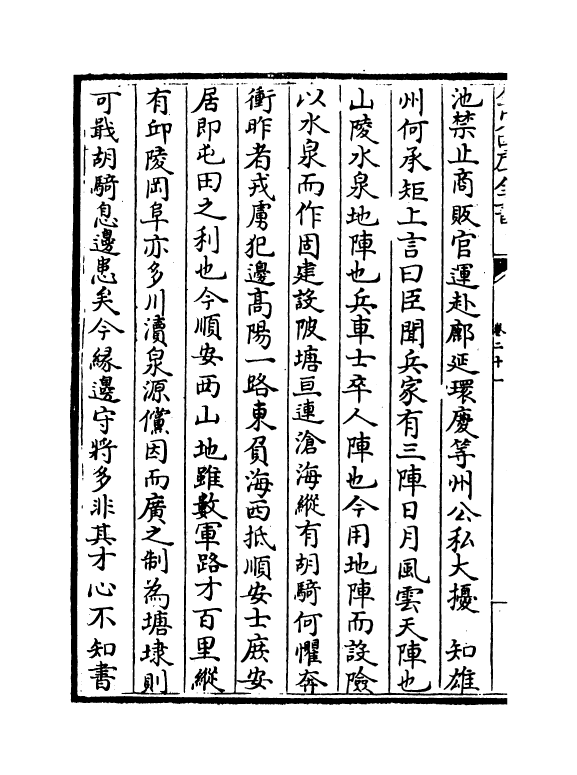 池禁止商販官運赴鄜延環慶等州公私大擾　知雄
州何承矩上言曰臣聞兵家有三陣日月風雲天陣也
山陵水泉地陣也兵車士卒人陣也今用地陣而設險
以水泉而作固建設陂塘亘連滄海縱有胡騎何懼奔
衝昨者戎虜犯邊髙陽一路東負海西抵順安士庶安
居即屯田之利也今順安西山地雖數軍路才百里縱
有邱陵岡阜亦多川瀆泉源儻因而廣之制為塘埭則
可戢胡騎息邊患矣今縁邊守將多非其才心不知書
卷二十一